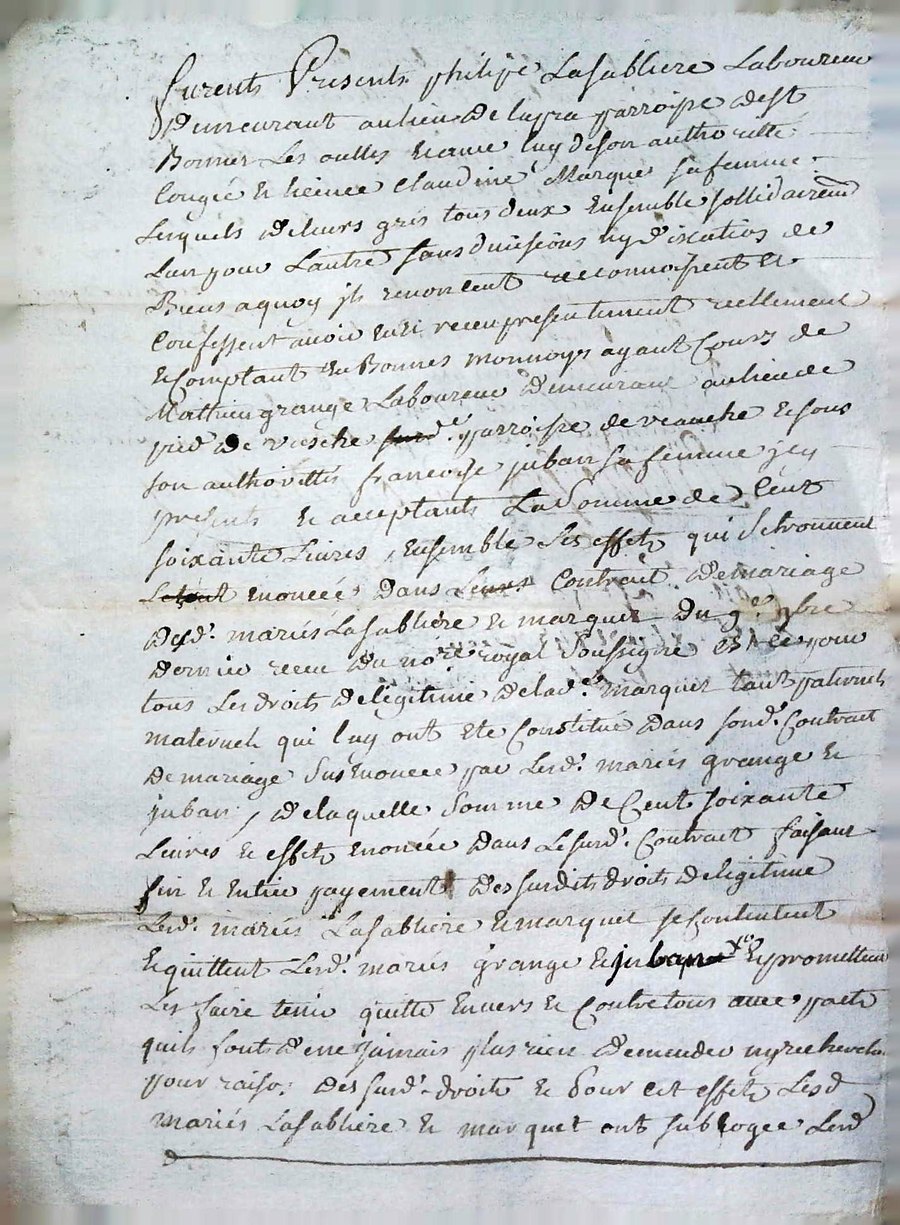 furent Presents philipe Lasabliere Laboureur
Demeurant au lieu De lapra parroisse de St
Bonnet Les oulles Et avec luy de son authoritté
Congée Et licence Claudine Marquet sa femme
Lesquels de leurs grés tous deux Ensemble sollidairemt
Lun pour Lautre sans divisions ny dixcution de
Biens a quoy jls renoncent reconnoissent Et
Confessent avoir Eu Et receu presentement reellement
Et Comptant En Bonnes monnoyes ayant Cours de
Mathieu grange Laboureur Demeurant au lieu de
pied de vische parroisse de veauche Et sous
son authorittés francoise juban sa femme jcy
presents Et acceptants La Somme de Cent
soixante Livres, Ensemble Les effets qui se trouvent
Enoncée Dans Contract De mariage
Desd. mariés Lasabliere Et marquet Du 9e. 9bre
Dernier receu Du nore royal soussigné Et Ce pour
tous Les droits De légitime De lad. marquet tant paternels
maternels qui luy ont Eté Constitué Dans sond. Contract
De mariage Sus Enoncée par Lesd. mariés grange Et
juban, De laquelle Somme De Cent soixante
Livres Et effets Enoncée Dans Le susd. Contract faisant
fin Et Entier payement Des susdits droits De légitime
Lesd. mariés Lasabliere Et marquet se Contentent
Et quittent Lesd. mariés grange Et juban Et promettent
Les faire tenir quitte Envers Et Contre tous avec pacte
quils font d'en jamais plus rien Demender ny rechercher
pour raiso: Des susd. droits Et Pour Cet effet Lesd
mariés Lasabliere Et marquet ont subrogée Lesd